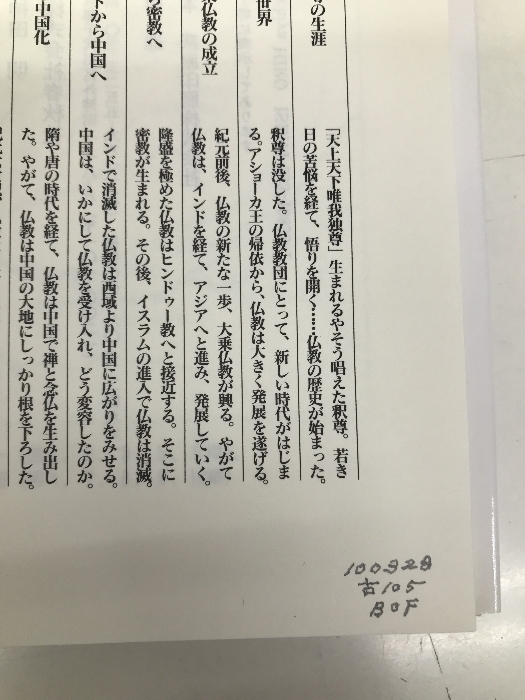 の生涯
「天上天下唯我独尊」生まれるやそう唱えた釈尊。若き
日の苦悩を経て、悟りを開く……仏教の歴史が始まった。
世界
釈尊は没した。仏教教団にとって、新しい時代がはじま
る。アショーカ王の帰依から、仏教は大きく発展を遂げる。
仏教の成立
紀元前後、仏教の新たな一歩、大乗仏教が興る。やがて
仏教は、インドを経て、アジアへと進み、発展していく。
密教へ
隆盛を極めた仏教はヒンドゥー教へと接近する。そこに
密教が生まれる。その後、イスラムの進入で仏教は消滅。
から中国へ
インドで消滅した仏教は西域より中国に広がりをみせる。
中国は、いかにして仏教を受け入れ、どう変容したのか。
中国化
隋や唐の時代を経て、仏教は中国で禅と念仏を生み出し
た。やがて、仏教は中国の大地にしっかり根を下ろした。
100329
古105
BOF